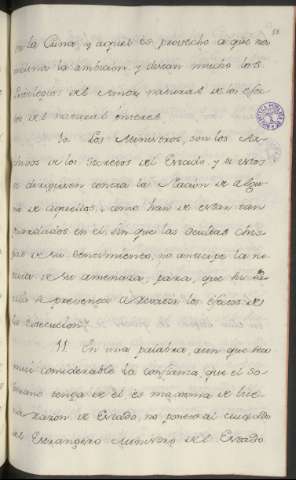 en la Cuna, y aquel es provecho a que nos
inclina la ambicion, y distan mucho los
Privilegios del Amor natural de los efec
tos del natural interes.
10. Los Ministros, son los Ar
chivos de los secretos del Estado y si estos
se dirigiesen contra la Nacion de algu
no de aquellos, como han de estar tan
guardados en el sin que las ocultas
de su no anticipe la no
ticia de su amenaza, para, que
la prevencion los efectos de
la execucion.
11. En una palabra, aun que sea
mui considerable la confianza que el So
berano tenga de él es maxima de bue
na razon de Estado, no ponerse al cuidado
del Estrangero Ministro del Estado